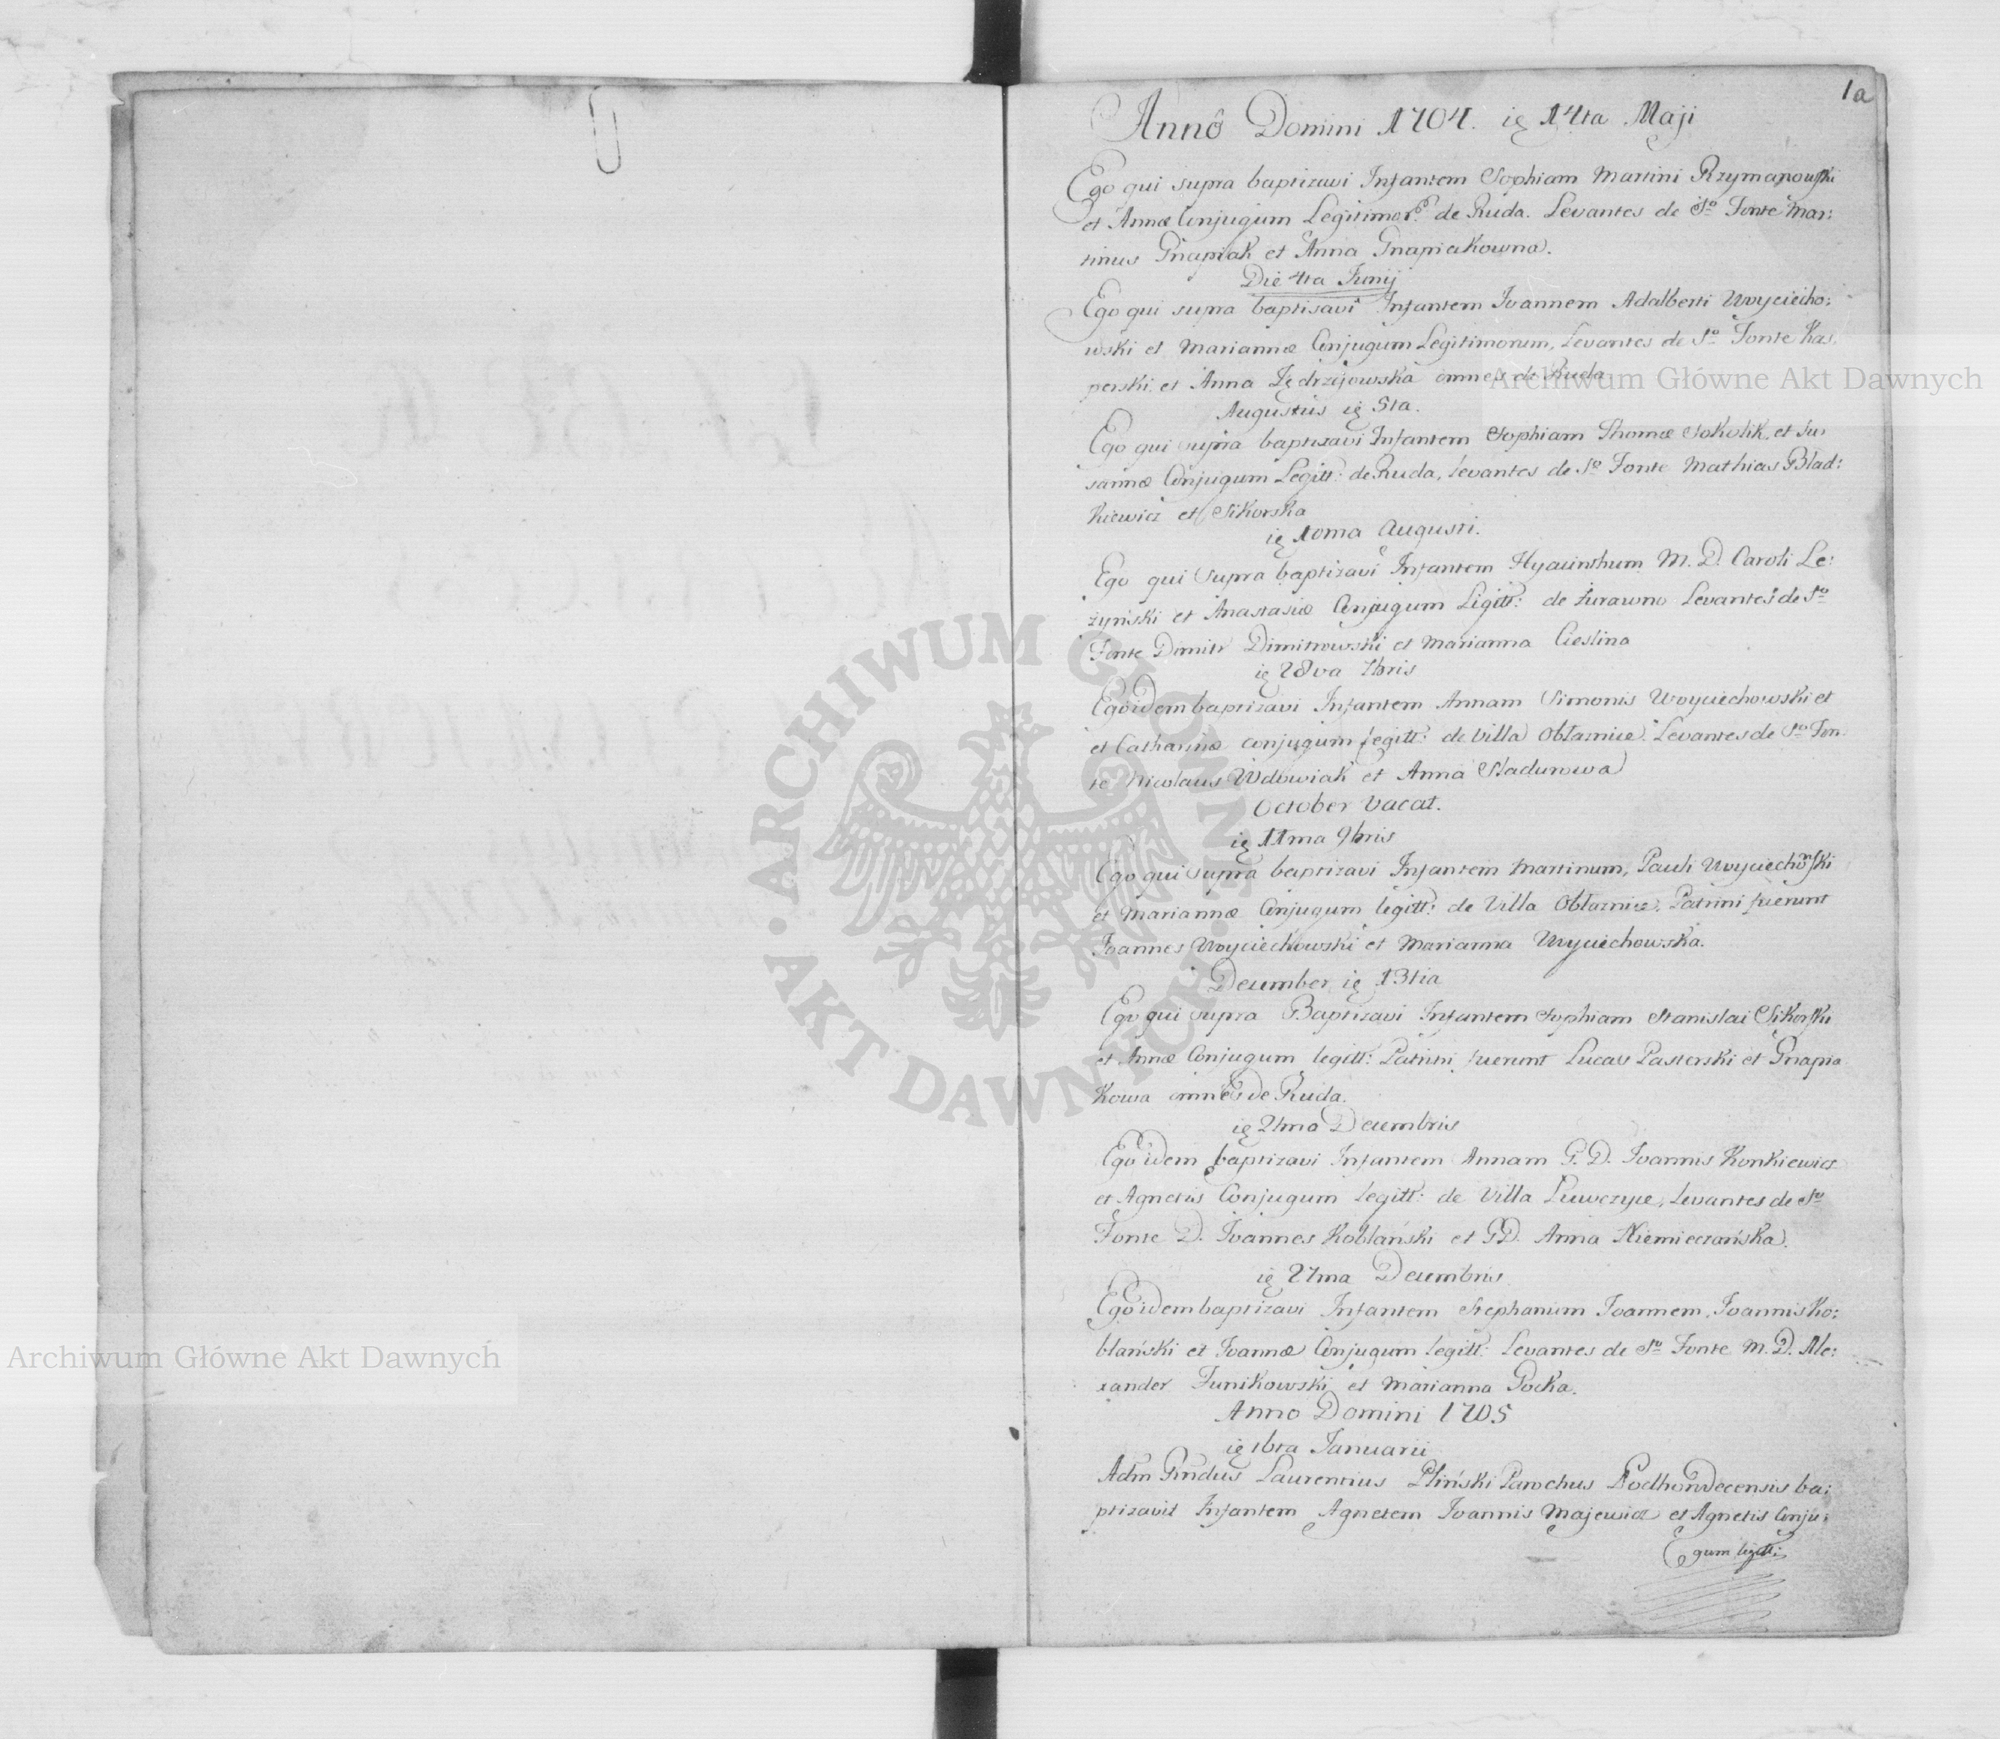 1a
Annô Domini 1704. ię 14ta Maji
Ego qui supra baptizavi Infantem Sophiam Martini Rzymanowski
et Annæ Conjugum Legitimor. de Ruda. Levantes de So Fonte Mar:
tinus Gnapiak et Anna Gnapiakowna.
Die 4ta Junij
Ego qui supra baptisavi Infantem Joannem Adalberti Woyciecho:
wski et Mariannæ Conjugum Legitimorum, Levantes de So Fonte Kas,
perski et Anna Jędrzijowska omnes de Ruda
Augustus ię 5ta.
Ego qui supra baptizavi Infantem Sophiam Thomæ Sokolik, et Su,
sannæ Conjugum Legitt: de Ruda, Levantes de So Fonte Mathias Blad:
kiewicz et Sikorska
ię 10ma Augusti.
Ego qui supra baptizavi Infantem Hyacinthum M. D. Caroli Le:
zyński et Anastasiæ Conjugum Legitt: de Żurawno Levantes de So
Fonte Dmitr Dimitrowski et Marianna Cieslina
ię 28va 7bris
Ego idem baptizavi Infantem Annam Simonis Woyciechowski et
et Catharinæ conjugum legitt: de Villa Obłaznice. Levantes de So Fon
te Nicolaus Wdowiak et Anna Sladurowa
October vacat.
ię 11ma 9bris
Ego qui supra baptizavi Infantem Martinum, Pauli Woyciechowski
et Mariannæ Conjugum legitt: de Villa Obłaznice. Patrini fuerunt
Joannes Woyciechowski et Marianna Woyciechowska.
December ię 13tia
Ego qui supra Baptizavi Infantem Sophiam Stanislai Sikorski
et Annæ Conjugum legitt: Patrini fuerunt Lucas Pasterski et Gnapia
kowa omnes de Ruda.
ię 21ma Decembris
Ego idem baptizavi Infantem Annam G. D. Joannis Konkiewicz
et Agnetis Conjugum legitt: de Villa Luwczyce, Levantes de So
Fonte D. Joannes Koblański et GD. Anna Niemieczańska.
ię 27ma Decembris
Ego idem baptizavi Infantem Stephanum Joannem, Joannis Ko:
blański et Joannæ Conjugum legitt: Levantes de So Fonte M. D. Ale:
xander Funikowski et Marianna Pocka.
Anno Domini 1705
ię 16ta Januarii
Adm Rndus Laurentius Pliński Parochus Podhorodecensis ba:
ptizavit Infantem Agnetem Joannis Majewicz et Agnetis Conju:
gum legitt:
Archiwum Główne Akt Dawnych
Archiwum Główne Akt Dawnych
ARCHIWUM GŁÓWNE
AKT DAWNYCH